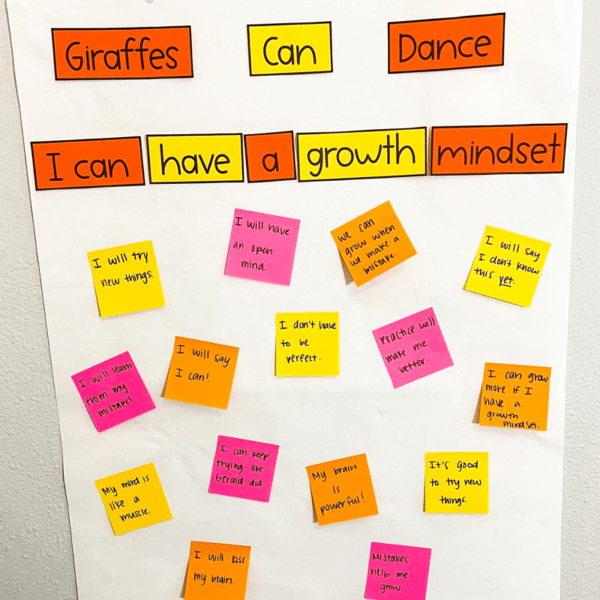 Giraffes Can Dance
I can have a growth mindset
I will try
new things.
I will have
an open
mind.
we can
grow when
we make a
mistake.
I will say
I don't know
this yet.
I will learn
from my
mistakes
I will say
I can!
I don't have
to be
perfect.
Practice will
make me
better.
I can grow
more if I
have a
growth
mindset.
My mind is
like a
muscle.
I can keep
trying like
Gerald did
My brain
is
powerful!
It's good
to try new
things.
I will
my brain.
Mistakes
help me
grow